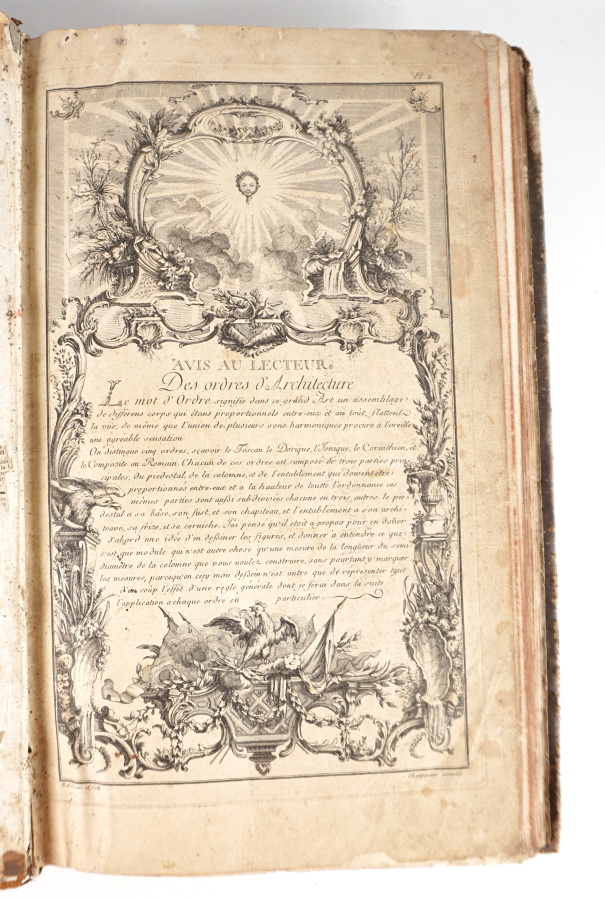 Pl. 2
AVIS AU LECTEUR.
Des ordres d'Architecture
Le mot d'Ordre signifie dans ce grand Art un assemblage
de differens corps qui étans proportionnels entre-eux et au tout, flattent
la vüe; de même que l'union de plusieurs sons harmoniques procure à l'oreille
une agréable sensation.
On distingue cinq ordres, sçavoir le Toscan le Dorique, l'Ionique, le Corinthien, et
le Composite ou Romain. Chacun de ces ordres est composé de trois parties prin-
cipales, du piedestal, de la colomne, et de l'entablement qui doivent etre
proportionnés entre-eux et a la hauteur de toutte l'ordonnance ces
mêmes parties sont aussi subdivisées chacune en trois autres, le pie-
destal a sa bâse, son fust, et son chapiteau, et l'entablement a son archi-
trave, sa frise, et sa corniche. J'ai pensé qu'il etoit a-propos pour en doñer
d'abord une idée d'en dessiner les figures, et donner a entendre ce que
c'est que module qui n'est autre chose qu'une mesure de la longueur du semi-
diamêtre de la colomne que vous voulez construire, sans pourtant y marquer
les mesures, parcequ'en cecy mon dessein n'est autre que de representer tout
d'un coup l'effet d'une regle générale dont je ferai dans la suite
l'application a chaque ordre en particulier.